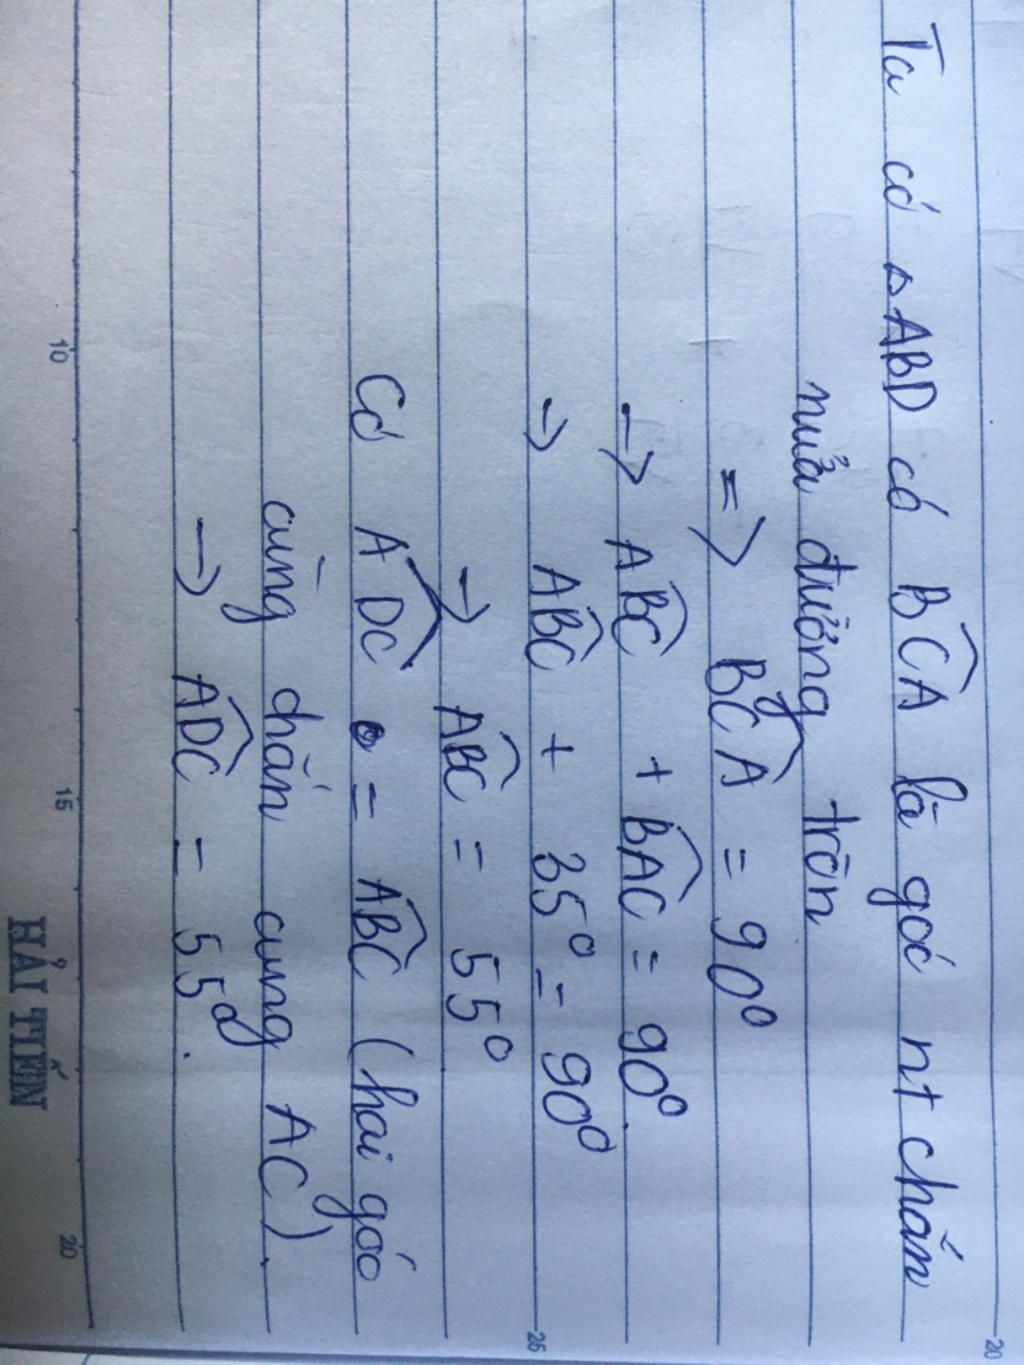 Ta có △ABD có B̂CA là góc nt chắn
nửa đường tròn
=> B̂CA = 90°
→ ÂBC + B̂AC = 90°.
→ ÂBC + 35° = 90°
→ ÂBC = 55°
Có ÂDC = ÂBC (hai góc
cùng chắn cung AC).
→ ÂDC = 55°.
HẢI TIẾN
10
15
20
25
20